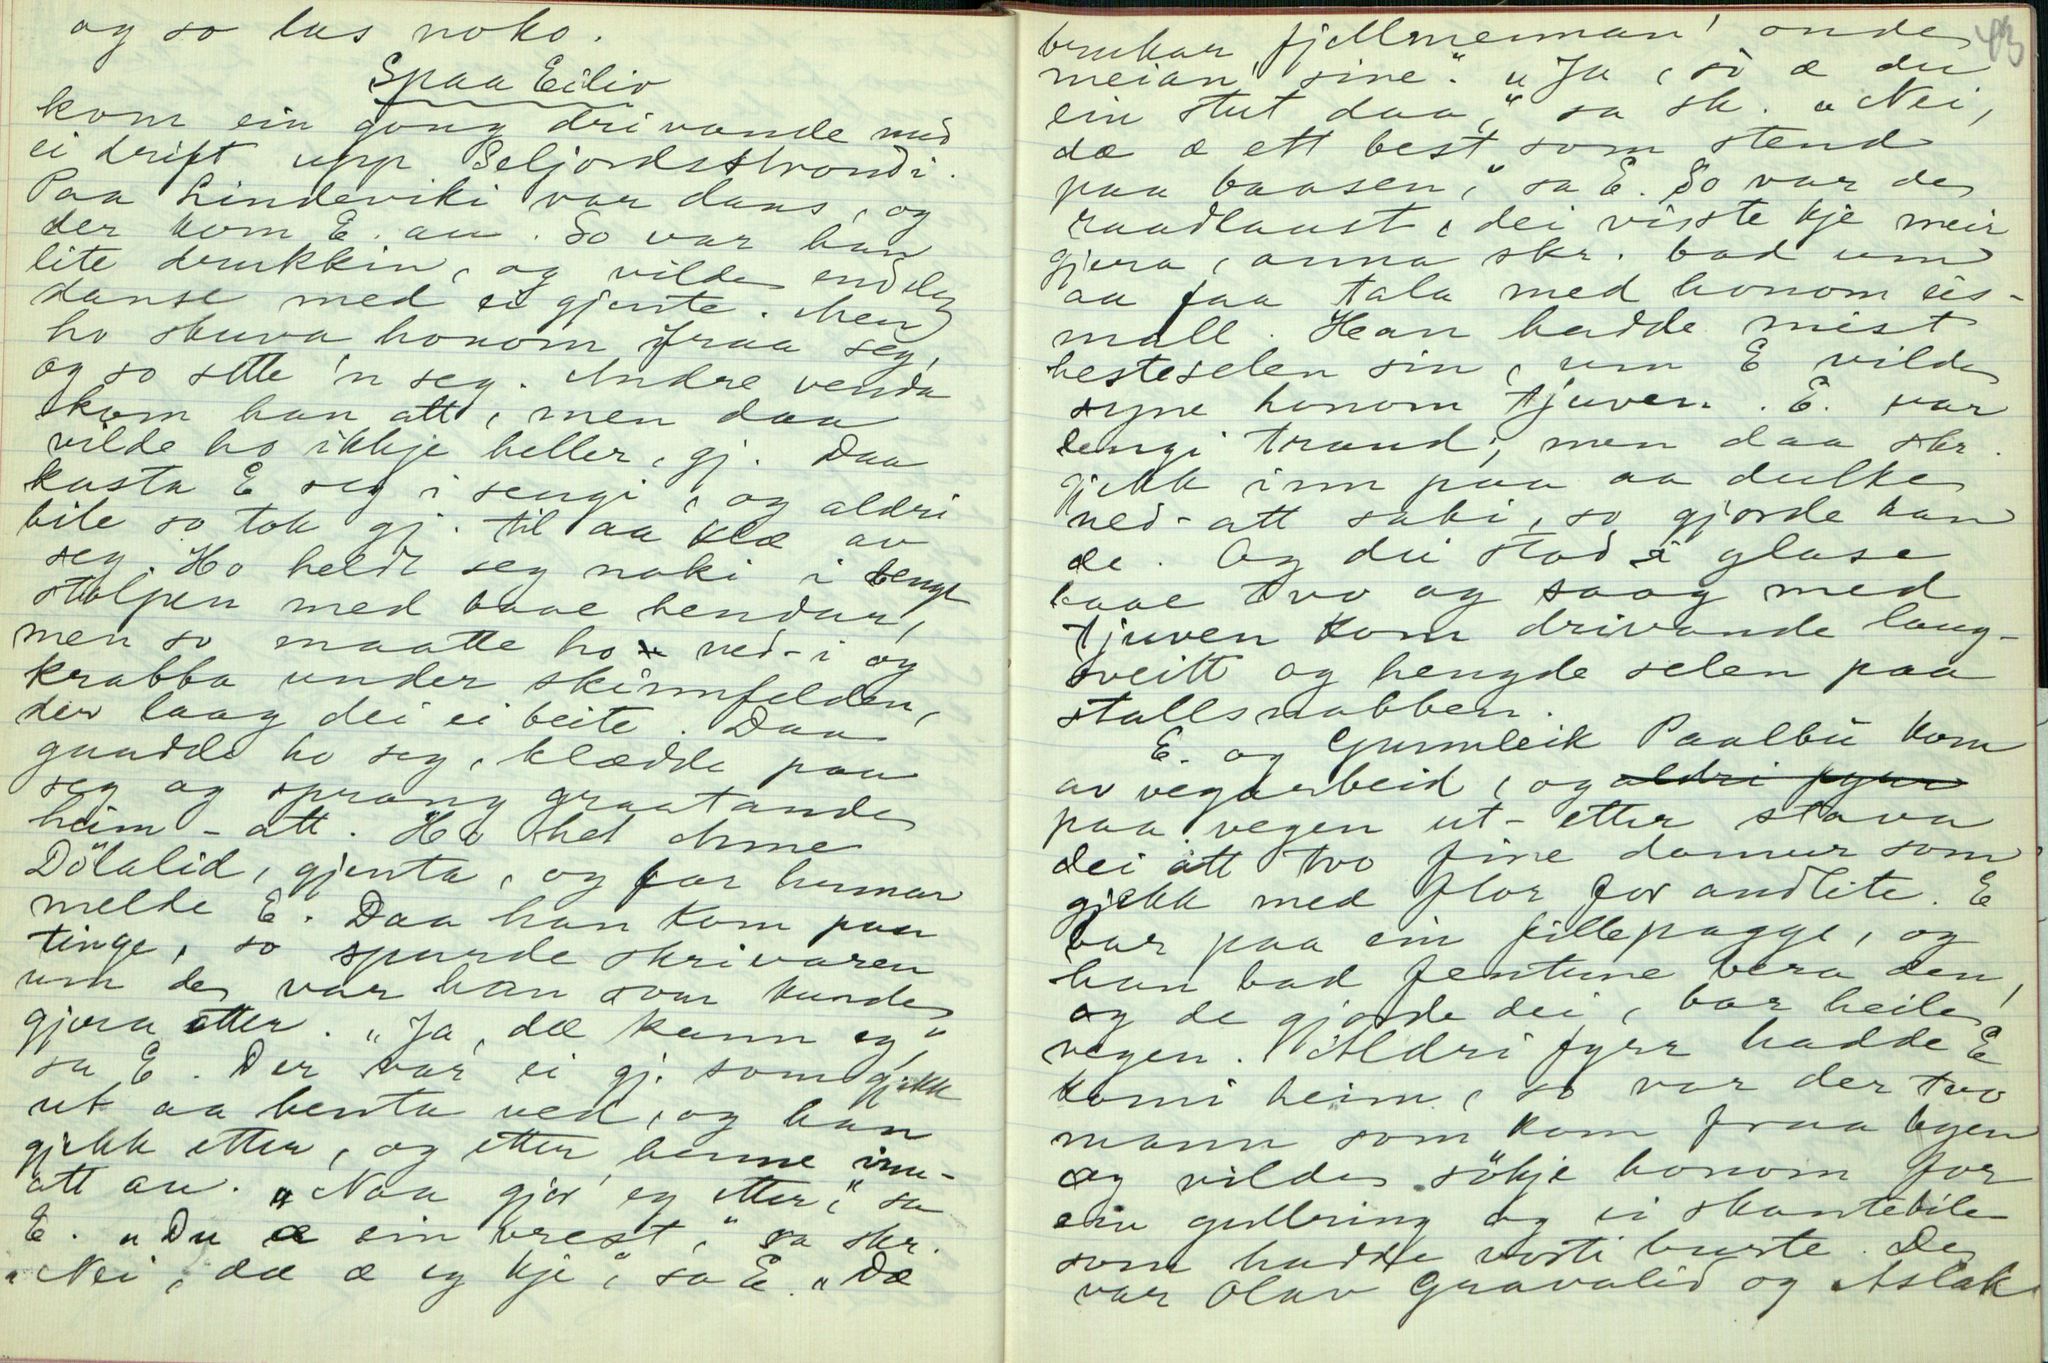 og so las noko.
Spaa Eiliv
kom ein gong drivande med
ei drift upp Seljordsstrondi.
Paa Lindeviki var dans, og
der kom E. au. So var han
lite drukkin, og vilde endeleg
danse med ei gjente. Men
ho skuva honom fraa seg,
og so sette 'n seg. Andre venda
kom han att, men daa
vilde ho ikkje heller, gj. Daa
kasta E seg i sengi, og aldri
bile so tok gj. til aa klæ av
seg. Ho heldt seg naki i senge
stolpen med baae hendar,
men so maatte ho ned-i og
krabba under skinnfelden,
der laag dei ei beite. Daa
gaadde ho seg, klædde paa
seg og sprang graatande
heim-att. Ho het Anne
Dölalid, gjenta, og far hennar
melde E. Daa han kom paa
tinge, so spurde skrivaren
um de var han som kunde
gjera etter. "Ja, dæ kann eg,"
sa E. Der var ei gj. som gjekk
ut aa henta ved, og han
gjekk etter, og etter henne inn-
att au. "Naa gjor eg etter," sa
E. "Du æ ein brest," sa skr.
"Nei, dæ æ eg kje," sa E. "Dæ
43
brukar fjellmennan' onde
meian' sine". "Ja, so æ du
ein stut daa," sa sk. "Nei,
dæ æ ett best som stend
paa baasen," sa E. So var de
raadlaust, dei visste kje meir
gjera, anna skr. bad um
aa faa tala med honom eis-
mall. Han hadde mist
hesteselen sin, um E vilde
syne honom tjuven. E. var
lengi traud, men daa skr.
gjekk inn paa aa dulke
ned-att saki, so gjorde han
de. Og dei stod i glase
baae tvo og saag med
tjuven kom drivande laug-
sveitt og hengde selen paa
stallsnabben.
E. og Gunnleik Paalbu kom
av vegarbeid, og aldri fyrr
paa vegen ut-etter stava
dei att tvo fine damur som
gjekk med flor for andlite. E
bar paa ein fillepagge, og
han bad fentune bera den,
og de gjorde dei, bar heile
vegen. Aldri fyrr hadde E
komi heim, so var der tvo
mann som kom fraa byen
og vilde sökje honom for
ein gullring og ei skantebile
som hadde vorti burte. De
var Olav Gravalid og Aslak